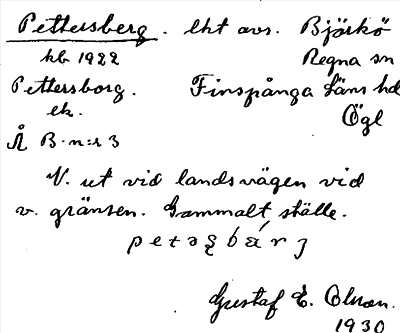 Pettersberg. lht avs. Björkö
kb 1922 Regna sn
Pettersborg. Finspånga läns hd
ek. Ögl
Å B.n:r 3
V. ut vid landsvägen vid
v. gränsen. Gammalt ställe.
Gustaf E. Olson.
1930